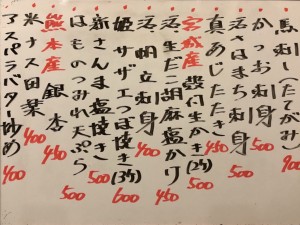 馬刺し(たてがみ)900
かつお刺身500
活はまち刺身500
真あじたたき450
宮城産 殻付生かき(2ケ)500
活生だこ胡麻塩かけ450
活明立刺身400
姫サザエつぼ焼き(3ケ)600
新さんま塩焼き500
はものつみれ天ぷら500
熊本産 銀杏450
米ナス田楽400
アスパラバター炒め400